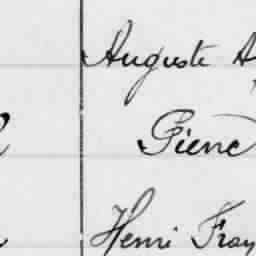 Auguste A
Pierre
Henri Fray